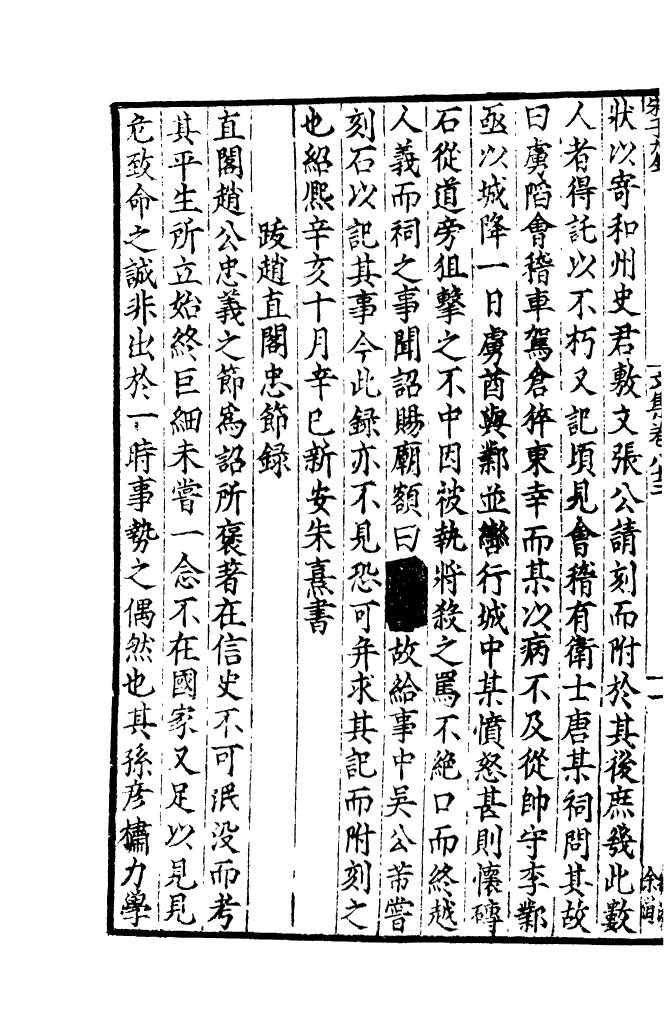 狀以寄和州史君敷文張公請刻而附於其後庶幾此數
人者得託以不朽又記頃見會稽有衛士唐某祠問其故
曰虜陷會稽車駕倉猝東幸而某以病不及從帥守李鄴
亟以城降一日虜酋與鄴並轡行城中某憤怒甚則懷磚
石從道旁狙擊之不中因被執將殺之罵不絕口而終越
人義而祠之事聞詔賜廟額曰故給事中吳公芾嘗
刻石以記其事今此録亦不見恐可并求其記而附刻之
也紹熙辛亥十月辛巳新安朱熹書
跋趙直閣忠節録
直閣趙公忠義之節爲詔所褒著在信史不可泯没而考
其平生所立始終巨細未嘗一念不在國家又足以見見
危致命之誠非出於一時事勢之偶然也其孫彦橚力學